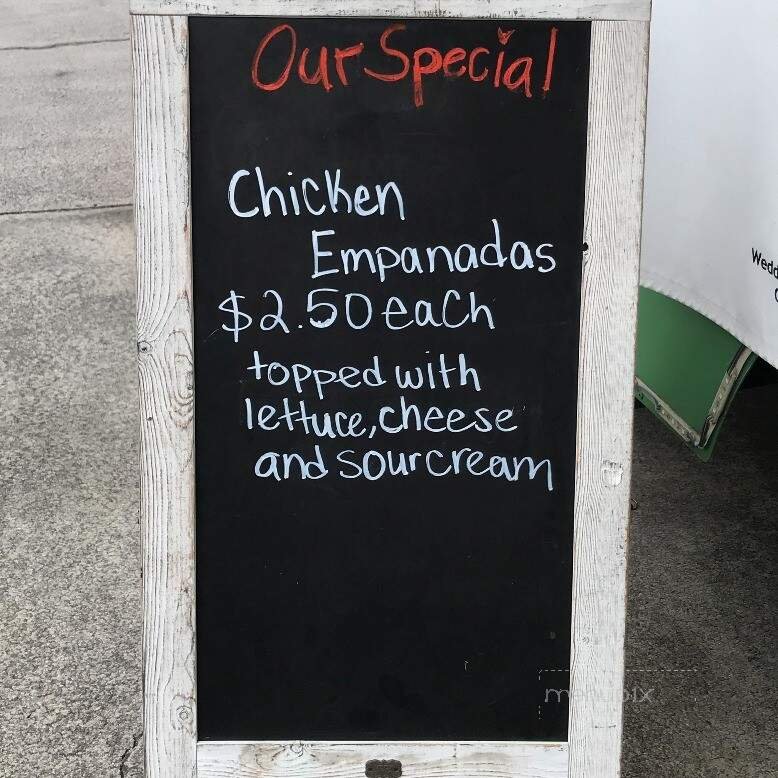 Our Special
Chicken
Empanadas
$2.50 each
topped with
lettuce, cheese
and sour cream